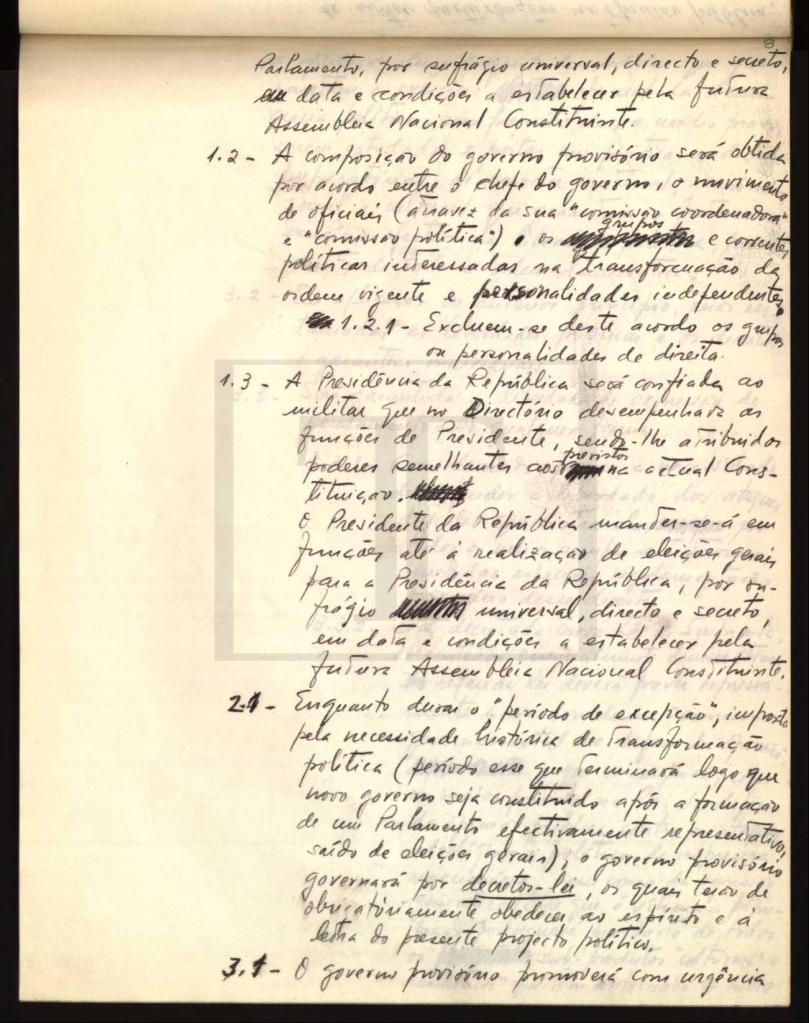 Parlamento, por sufrágio universal, directo e secreto,
em data e condições a estabelecer pela futura
Assembleia Nacional Constituinte.
1.2 - A composição do governo provisório será obtida
por acordo entre o chefe do governo, o movimento
de oficiais (através da sua "comissão coordenadora"
e "comissão política"), os grupos e correntes
políticas interessadas na transformação da
ordem vigente e personalidades independentes.
1.2.1 - Excluem-se deste acordo os grupos
ou personalidades de direita.
1.3 - A Presidência da República será confiada ao
militar que no Directório desempenhava as
funções de Presidente, sendo-lhe atribuídos
poderes semelhantes aos previstos na actual Cons-
tituição.
O Presidente da República manter-se-á em
funções até à realização de eleições gerais
para a Presidência da República, por su-
frágio universal, directo e secreto,
em data e condições a estabelecer pela
futura Assembleia Nacional Constituinte.
2.1 - Enquanto durar o "período de excepção", imposto
pela necessidade histórica de transformação
política (período esse que terminará logo que
novo governo seja constituído após a formação
de um Parlamento efectivamente representativo,
saído de eleições gerais), o governo provisório
governará por decretos-lei, os quais terão de
obrigatóriamente obedecer ao espírito e à
letra do presente projecto político.
3.1 - O governo provisório promoverá com urgência